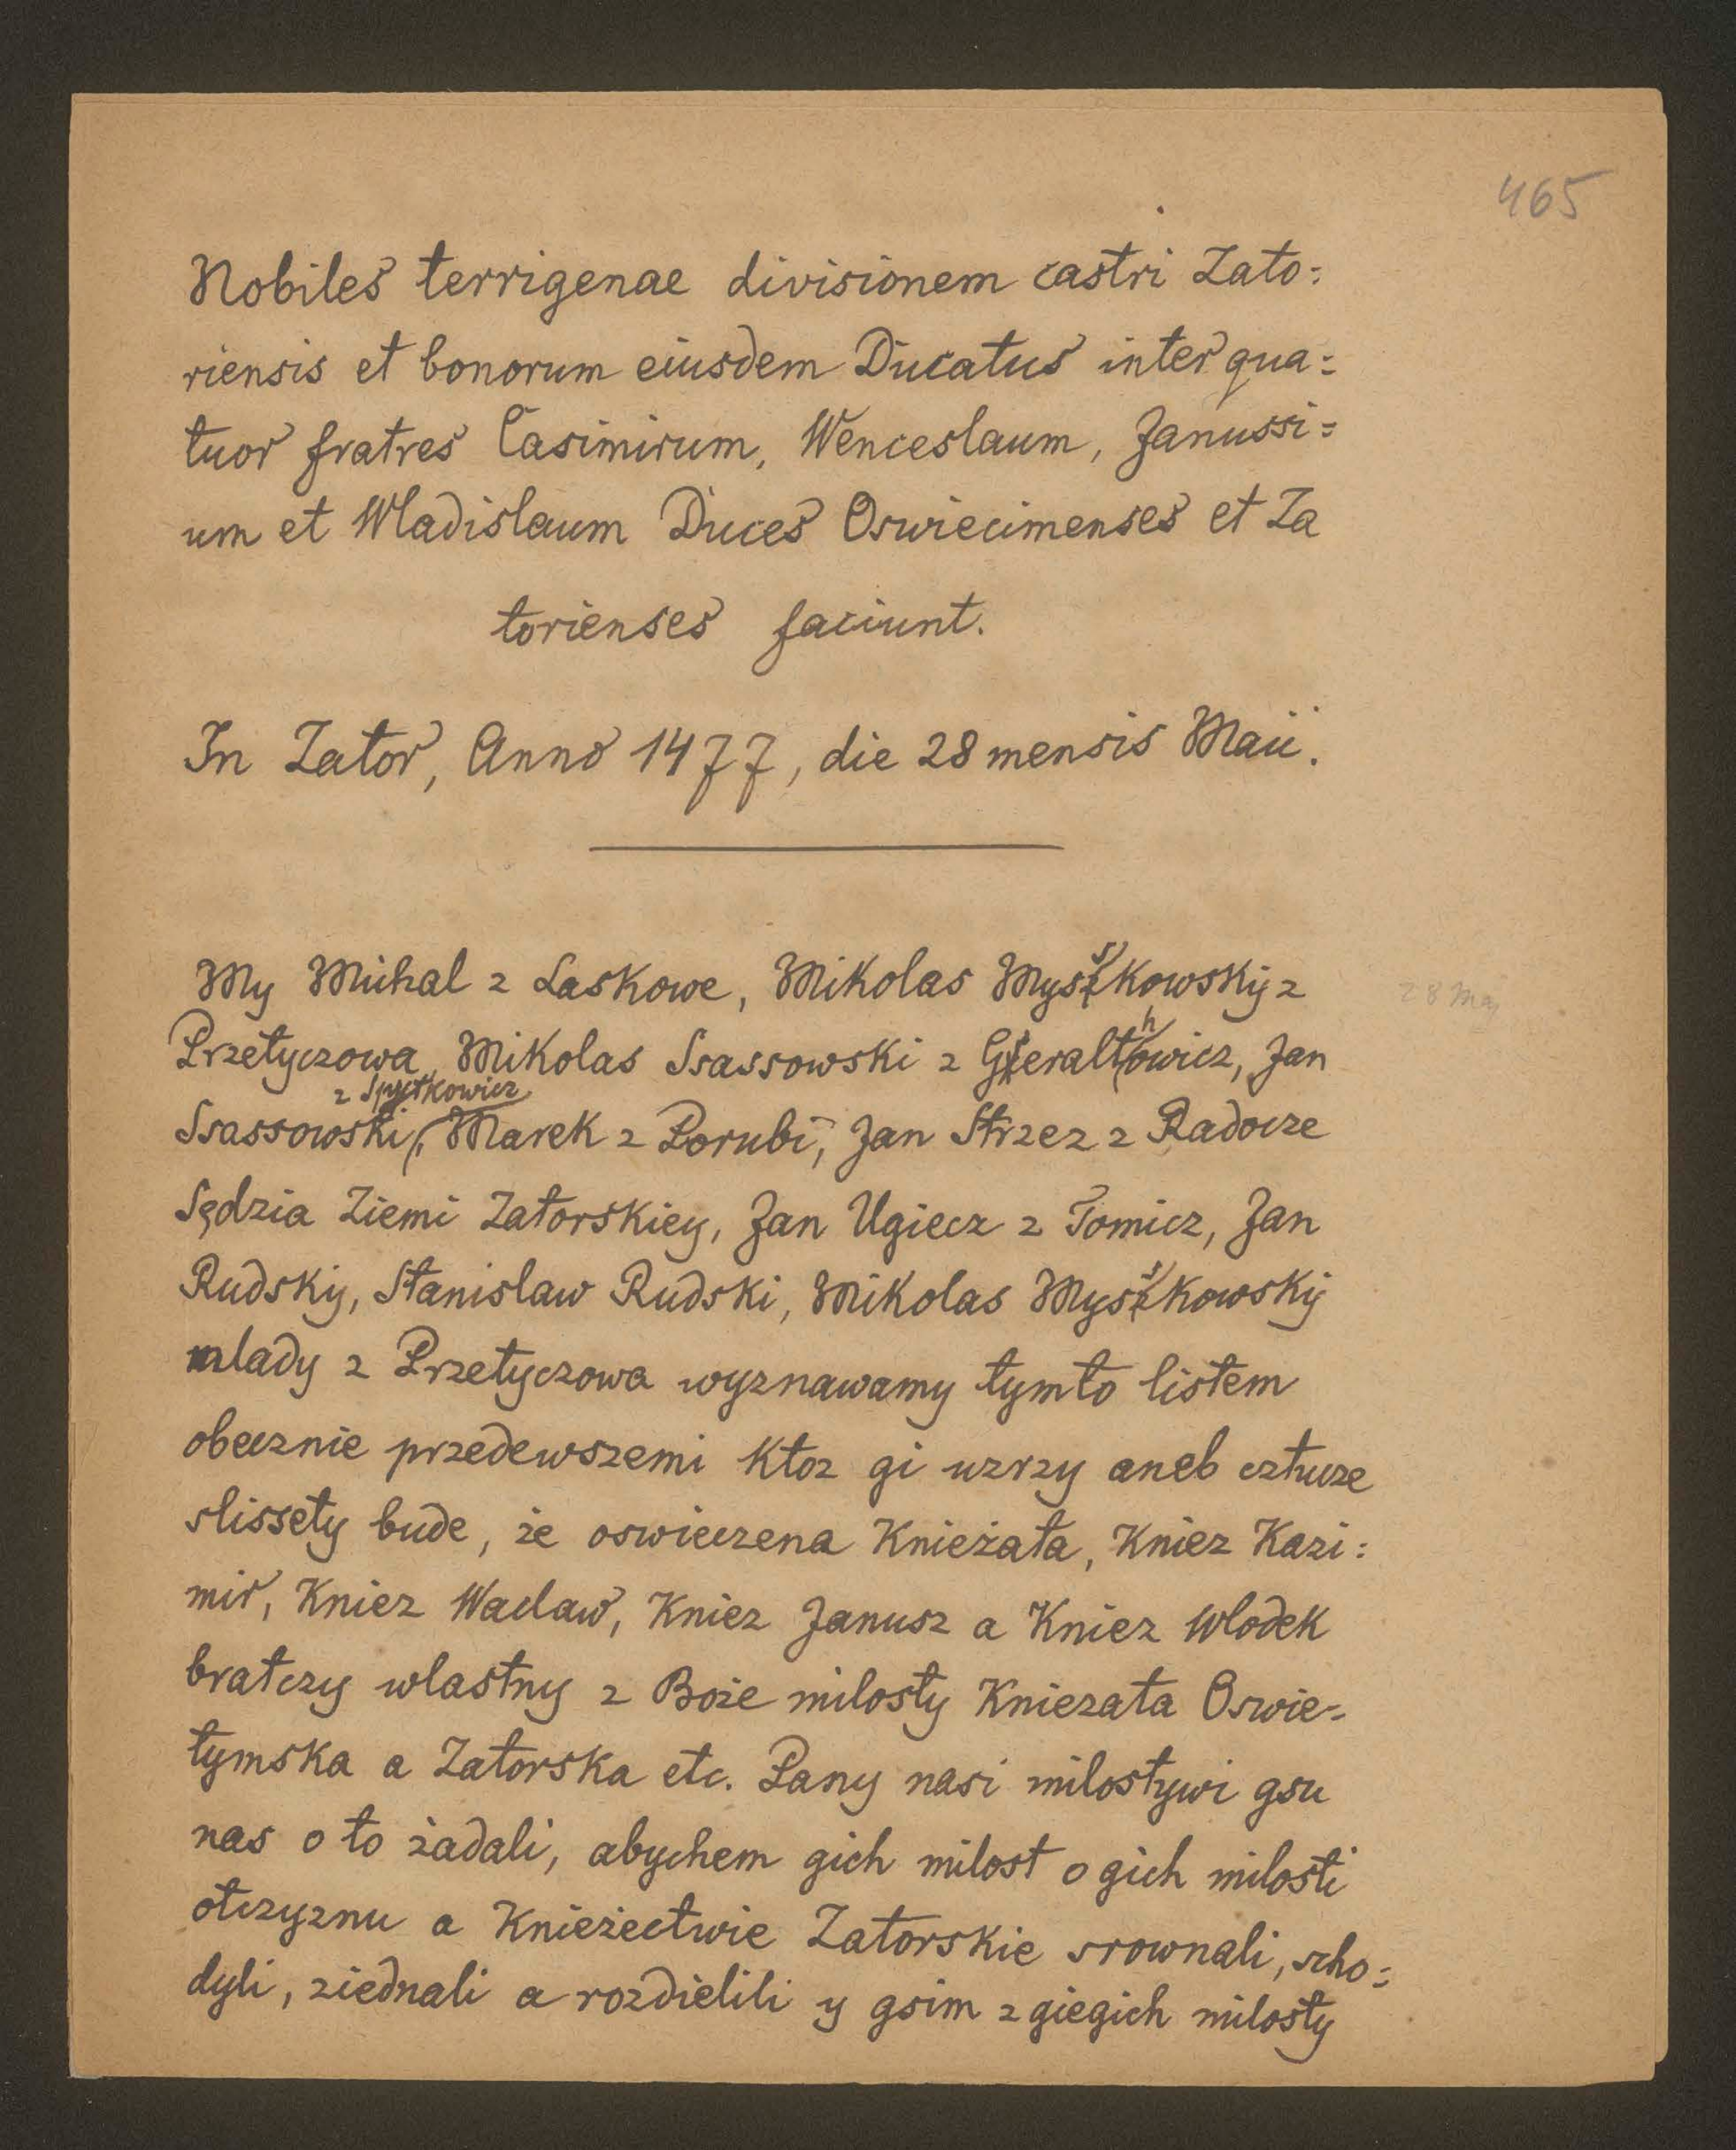 465
Nobiles terrigenae divisionem castri Zato:
riensis et bonorum eiusdem Ducatus inter qua:
tuor fratres Casimirum, Wenceslaum, Janussi:
um et Wladislaum Duces Oswiecimenses et Za
torienses faciunt.
In Zator, Anno 1477, die 28 mensis Maii.
My Michal z Laskowe, Mikolas Myskowsky z
28 Maj
Przetyczowa, Mikolas Ssassowski z Gieralthowicz, Jan
z Spytkowicz
Ssassowski, Marek z Porubi, Jan Strzez z Radocze
Sędzia Ziemi Zatorskiey, Jan Ugiecz z Tomicz, Jan
Rudsky, Stanislaw Rudski, Mikolas Myskowsky
mlady z Przetyczowa wyznawamy tymto listem
obecznie przedewszemi ktoz gi uzrzy aneb cztucze
slissety bude, że oswieczena Knieżata, Kniez Kazi:
mir, Kniez Waclaw, Kniez Janusz a Kniez Wlodek
bratczy wlastny z Boże milosty Kniezata Oswie-
tymska a Zatorska etc. Pany nasi milostywi gsu
nas o to żadali, abychem gich milost o gich milosti
otczyznu a Knieżectwie Zatorskie srownali, scho:
dyli, ziednali a rozdielili y gsim z giegich milosty